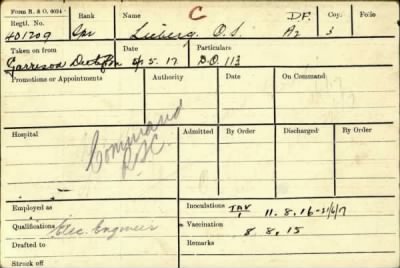 Form R. & O. 6024
Regtl. No. Rank Name C DP. Coy. Folio
401209 Spr Lieberg, O.S. A2 3
Taken on from Date Particulars
Garrison 5/5.17 D.O. 113
Promotions or Appointments Authority Date On Command
Command
Hospital Admitted By Order Discharged By Order
Employed as Inoculations TAV 11.8.16-21/6/17
Qualifications Elec. Engineer Vaccination 8.8.15
Drafted to Remarks
Struck off